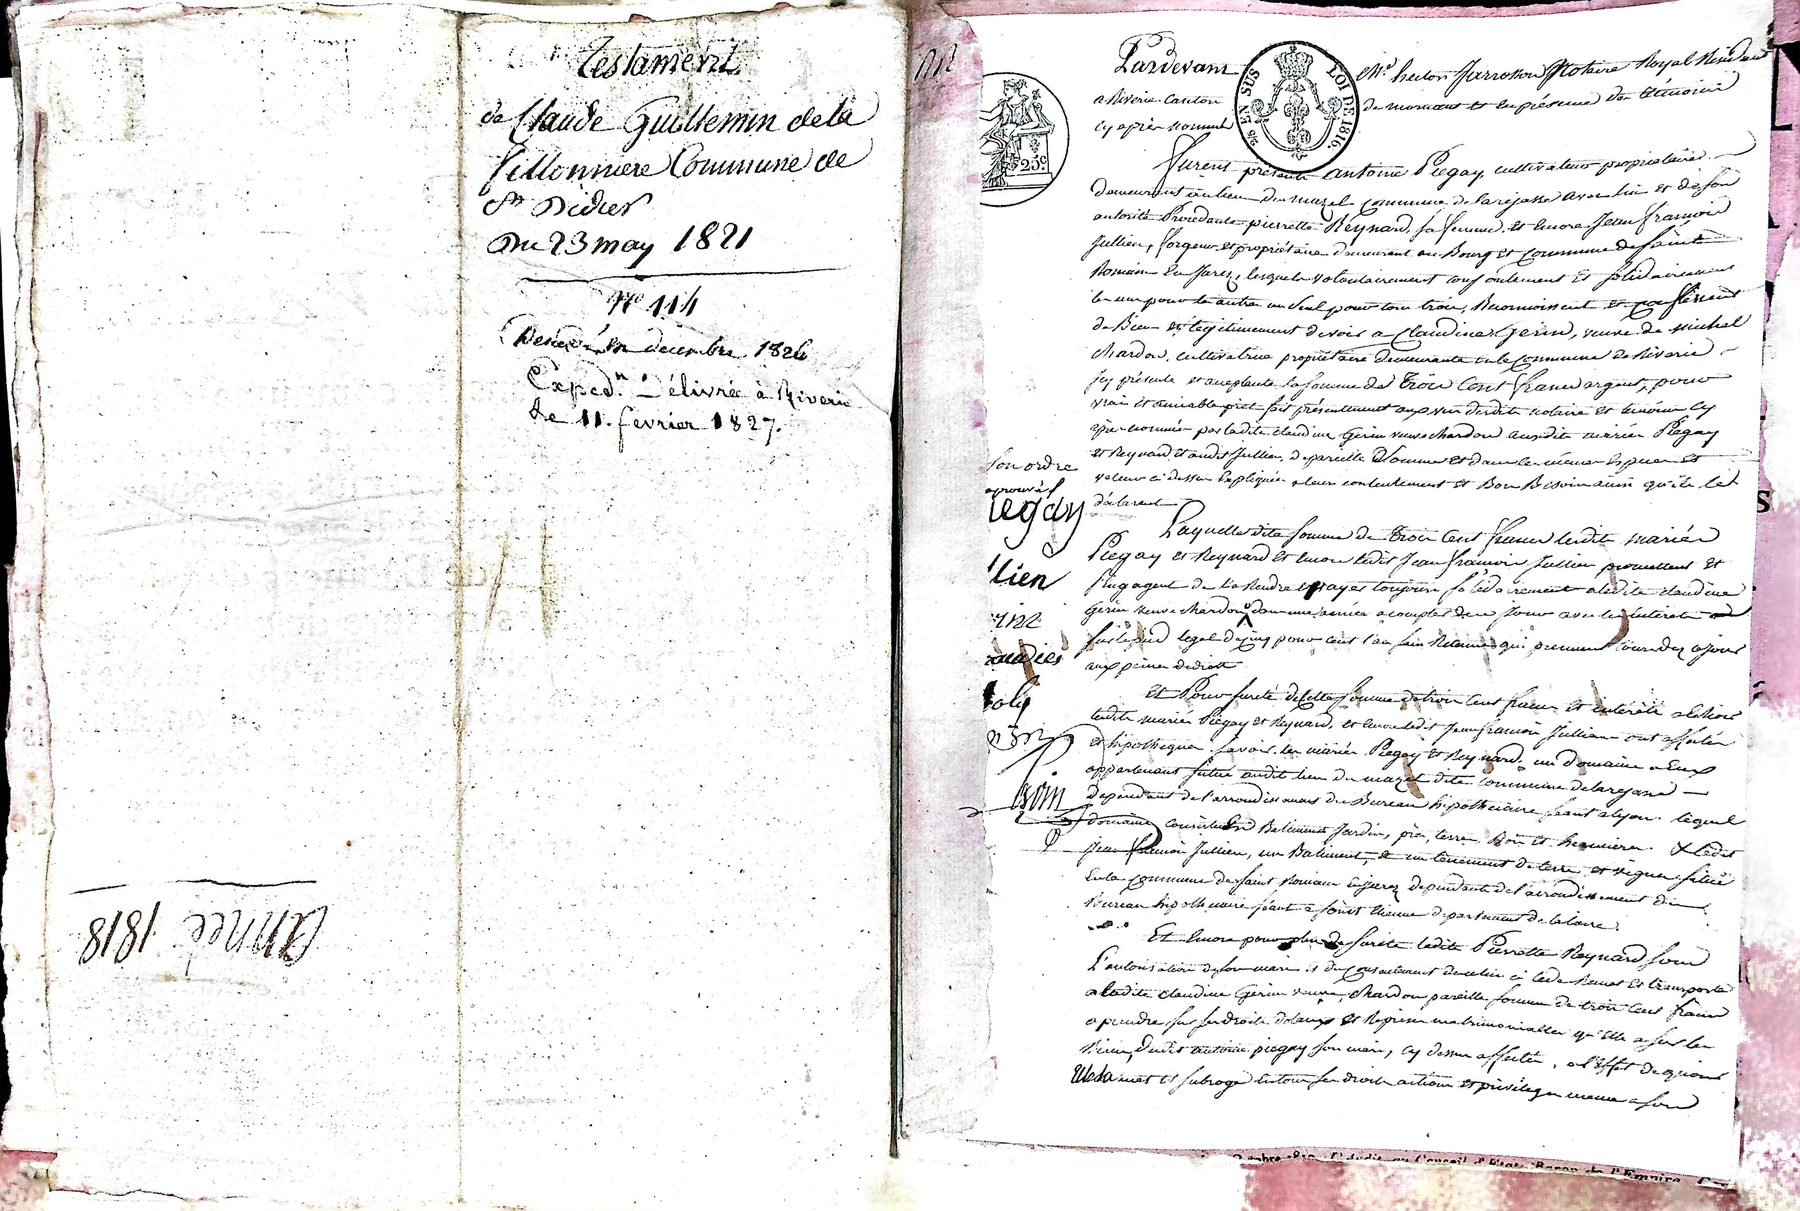 Testament
de Claude Guillemin de la
fillonniere Commune de
St Didier
Du 23 may 1821
N° 114
Decedé en decembre 1826
Exped.n Délivrée à Riverie
Le 11. fevrier 1827.
année 1818
Pardevant Me hector Jarrosson Notaire Royal Résidant
a Riverie Canton de mornant et en présence des témoins
cy après nommés
EN SUS
LOI DE 1816.
25c
Furent présents antoine Piegay cultivateur propriétaire
demeurant au lieu du mazel commune de larajasse avec lui et de son
autorité Procédante pierrette Reynard sa femme, et encore Jean François
Jullien, forgeur et propriétaire demeurant au Bourg et commune de Saint
Romain en Jarez, lesquels volontairement conjointement et solidairement
les uns pour les autres un seul pour tous trois, Reconnoissent et confessent
de Bien et légitimement devoir a Claudine Gerin, veuve de michel
chardon, cultivatrice propriétaire demeurante en la Commune de Riverie
icy présente et acceptante la somme de Trois Cent francs argent, pour
vrai et amiable prêt fait présentement aux vus dudit notaire et témoins cy
après nommés par ladite claudine Gerin veuve chardon auxdits mariés Piegay
et Reynard et audit Jullien, de pareille Somme et dans les mêmes Espèces et
valeurs ci dessus Expliquées a leur contentement et Bon Besoin ainsi qu'ils le
déclarent
Son ordre
approuvés
iegay
llien
Laquelle dite somme de trois Cent francs lesdits mariés
Piegay et Reynard et encore ledit Jean François Jullien promettent et
S'engagent de la Rendre et payer toujours solidairement a ladite claudine
Gerin veuve chardon dans une année a compter de ce jour avec les intérêts
sur le pied legal de cinq pour cent l'an sans Retenue qui prennent cours dez ce jour
aux peines de droit
Et Pour sureté de cette somme de trois Cent francs et intérêts
lesdits mariés Piegay et Reynard, et encore ledit Jean françois Jullien ont affectés
et hipothequés savoir les mariés Piegay et Reynard un domaine a Eux
appartenant situé audit lieu du mazel dite commune de larajasse
dependant de l'arrondissement du Bureau hipothécaire séant a lyon lequel
domaine consiste En Batiments Jardin, prés, terres, Bois et
Jean françois Jullien, un Batiment, et un tenement de terre et vigne situés
En la commune de Saint Romain en Jarez dependant de l'arrondissement du
Bureau hipothécaire séant a Saint Etienne departement de la loire.
Et Encore pour plus de sureté ladite Pierrette Reynard sous
L'autorisation de son mari et du consentement de celui ci cede Remet Et transporte
a ladite claudine Gerin veuve chardon pareille somme de trois cent francs
a prendre sur ses droits dotaux et Reprises matrimonialles qu'elle a sur les
Biens dudit antoine piegay son mari, cy dessus affectés, a l'Effet de quoi
Elle la met et subroge en tous ses droits actions et privilèges même a son